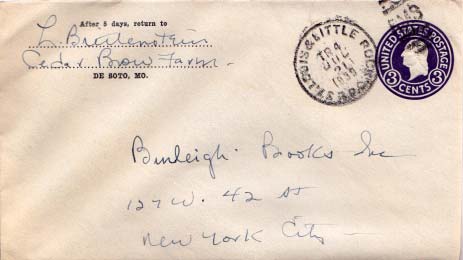 After 5 days, return to
L. Brotenstein
Cedar Brow Farm.
DE SOTO, MO.
ST. LOUIS & LITTLE ROCK
TR 4
JUL
1939
R.P.O.
UNITED STATES POSTAGE
3 CENTS 3
Burleigh Books Inc
127 W. 42 St
New York City